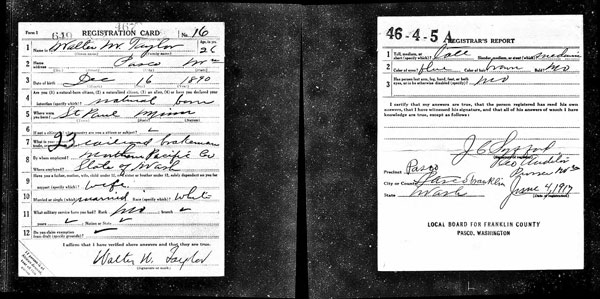 Form 1 REGISTRATION CARD No. 16
1 Name in full Walter W. Taylor Age, in yrs. 26
2 Home address Pasco Wn
3 Date of birth Dec 16 1890
4 Are you (1) a natural-born citizen, (2) a naturalized citizen, (3) an alien, (4) or have you declared your
intention (specify which)? natural born
5 Where were you born? St Paul Minn
6 If not a citizen, of what country are you a citizen or subject?
7 What is your 23 railroad brakeman
8 By whom employed? Northern Pacific Co
Where employed? State of Wash
9 Have you a father, mother, wife, child under 12, or a sister or brother under 12, solely dependent on you for
support (specify which)? wife
10 Married or single (which)? married Race (specify which)? White
11 What military service have you had? Rank no branch
years Nation or State
12 Do you claim exemption
from draft (specify grounds)?
I affirm that I have verified above answers and that they are true.
Walter W. Taylor
46-4-5 A REGISTRAR'S REPORT
1 Tall, medium, or short (specify which)? Tall Slender, medium, or stout (which)? medium
2 Color of eyes? Blue Color of hair? brown Bald? No
3 Has person lost arm, leg, hand, foot, or both
eyes, or is he otherwise disabled (specify)? No
I certify that my answers are true, that the person registered has read his own
answers, that I have witnessed his signature, and that all of his answers of which I have
knowledge are true, except as follows:
Precinct Pasco
City or County Pasco Franklin
State Wash June 5, 1917
LOCAL BOARD FOR FRANKLIN COUNTY
PASCO, WASHINGTON